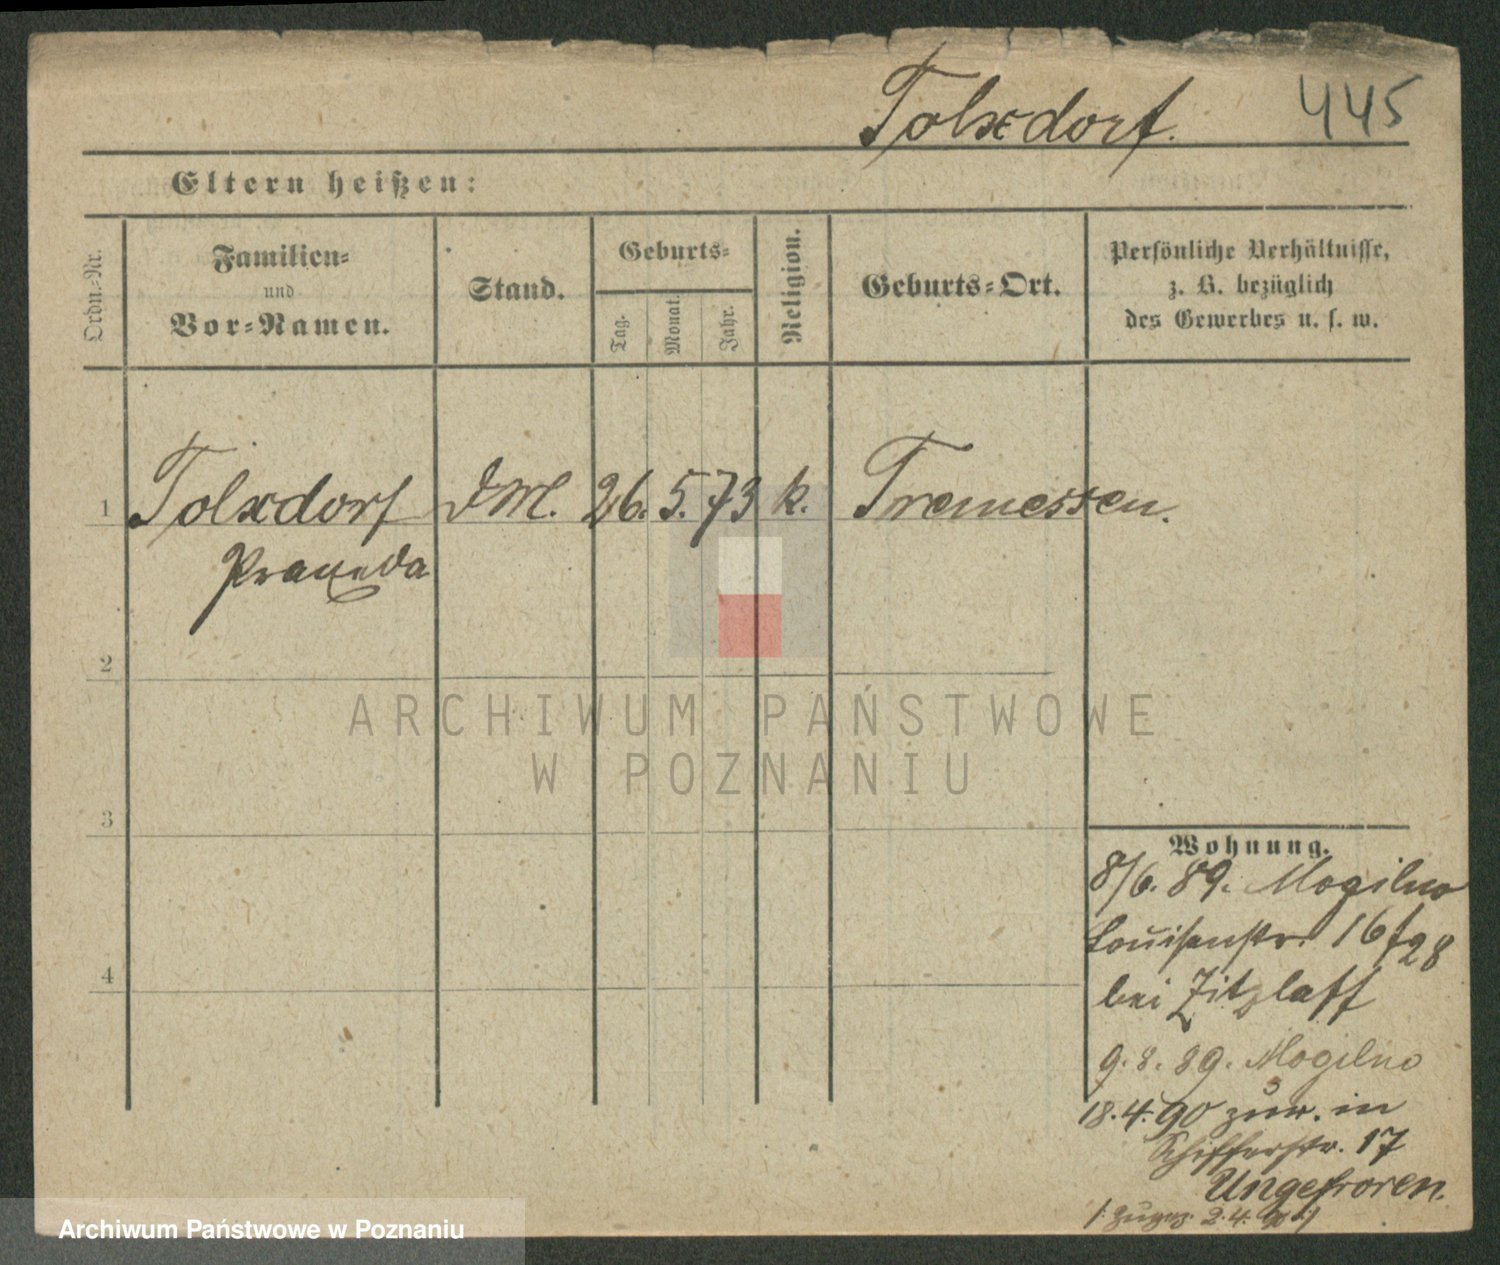 Tolxdorf. 445
Eltern heißen:
Ordn.-Nr.
Familien-
und
Vor-Namen.
Stand.
Geburts-
Tag.
Monat.
Jahr.
Religion.
Geburts-Ort.
Persönliche Verhältnisse,
z. B. bezüglich
des Gewerbes u. s. w.
1 Tolxdorf DM. 26. 5. 73 k. Tremessen.
Praxeda
2
3
4
Wohnung.
8/6. 89. Mogilno
Louisenstr. 16/28
bei Zitzlaff
9. 8. 89. Mogilno
18. 4. 90 zur. in
Schifferstr. 17
Ungefroren.
2. 4. 90
ARCHIWUM PAŃSTWOWE
W POZNANIU
Archiwum Państwowe w Poznaniu